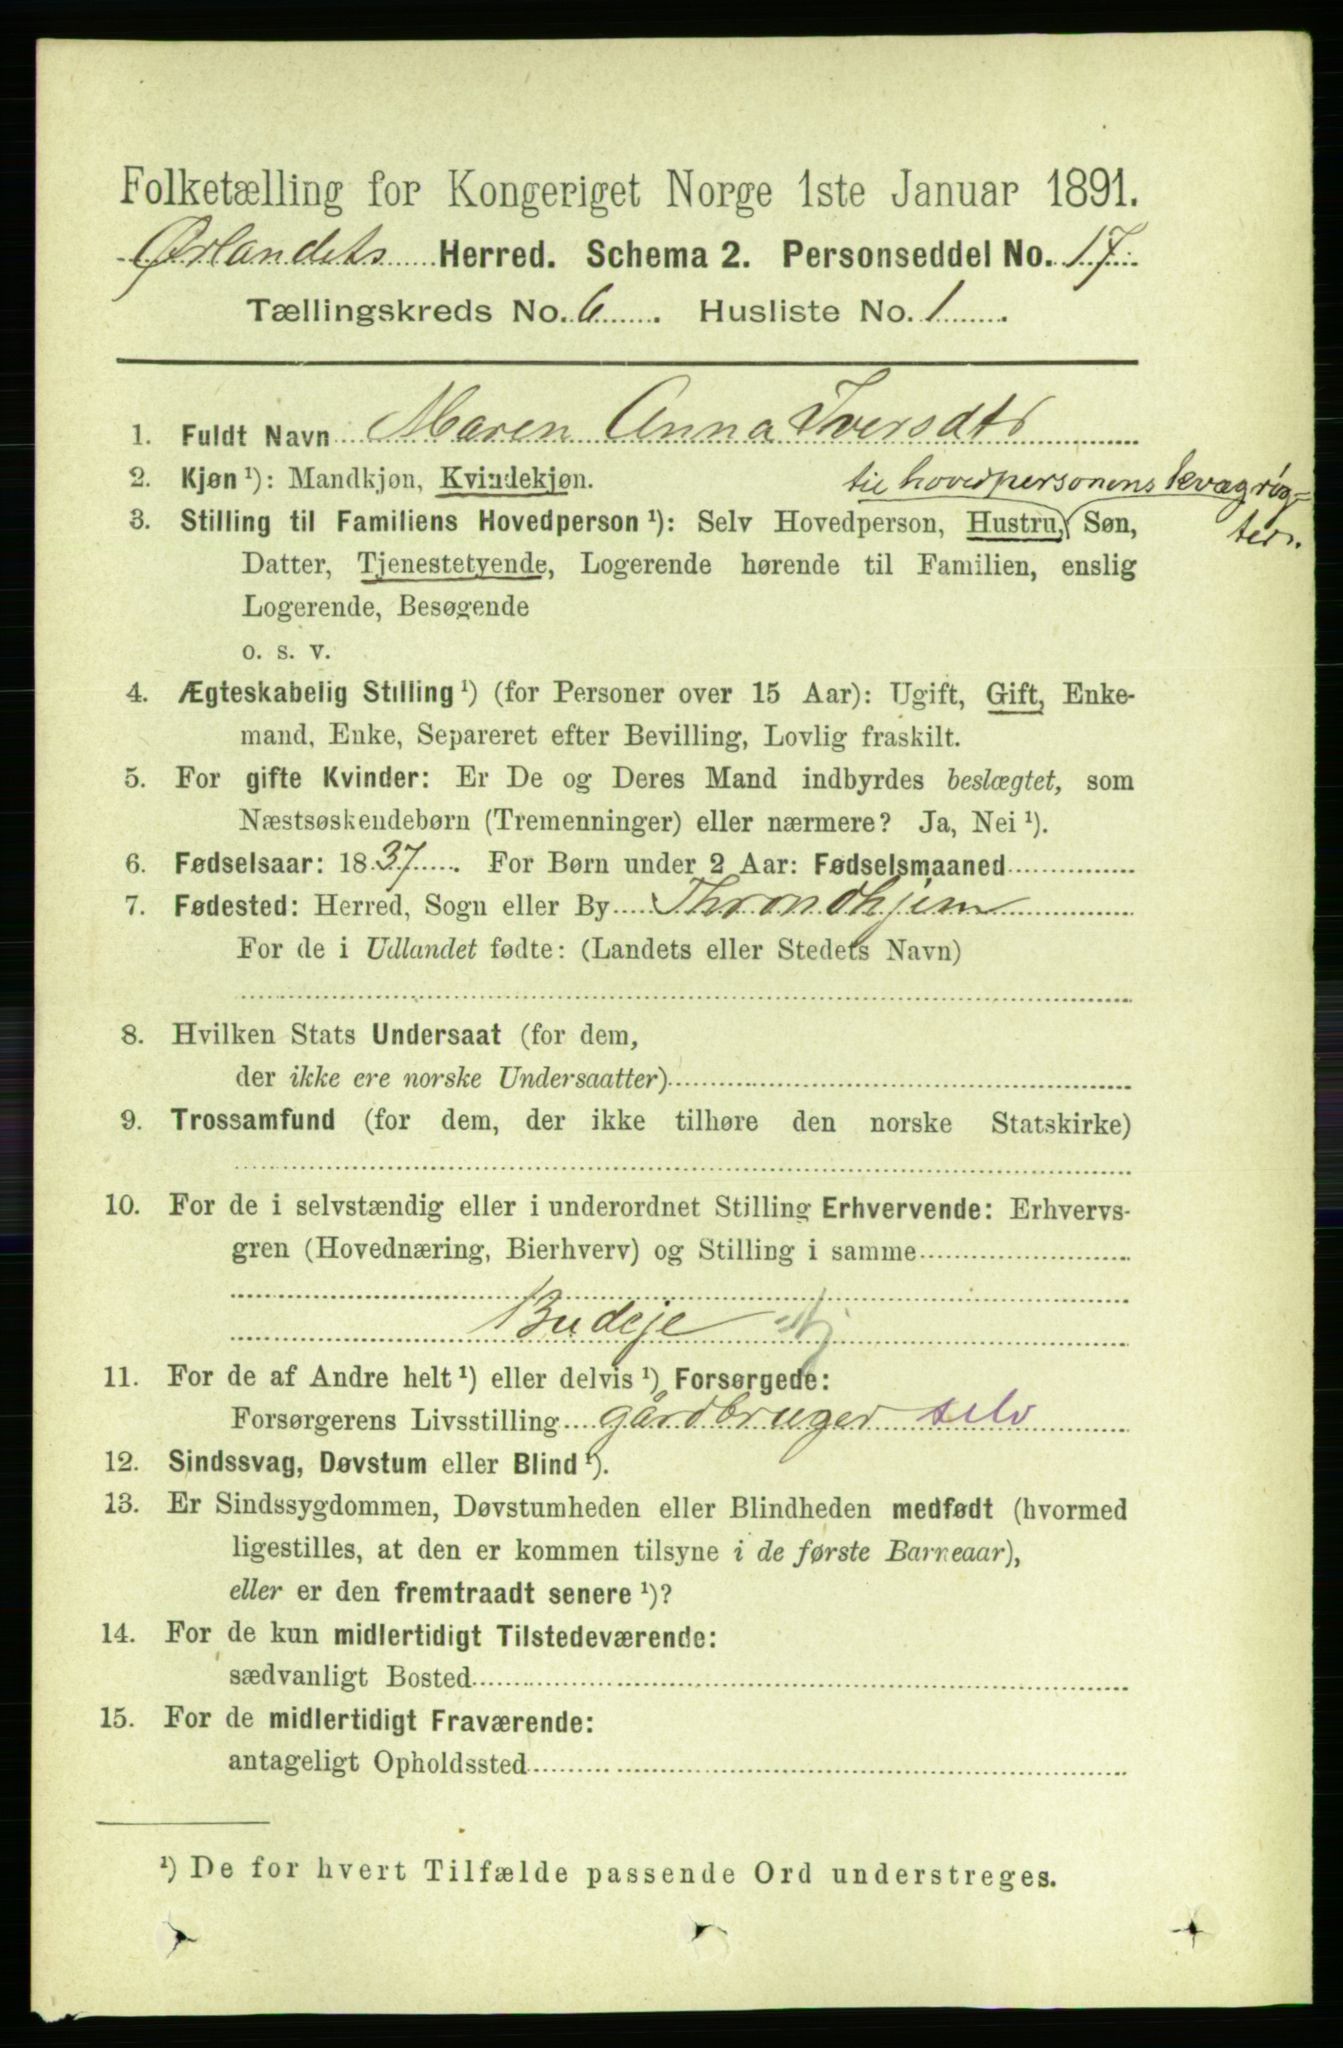 Folketælling for Kongeriget Norge 1ste Januar 1891.
Ørlandets Herred. Schema 2. Personseddel No. 17.
Tællingskreds No. 6. Husliste No. 1.
1. Fuldt Navn Maren Anna Iversdt
2. Kjøn ¹): Mandkjøn, Kvindekjøn.
til hovedpersonens kvægrøg=
ter.
3. Stilling til Familiens Hovedperson ¹): Selv Hovedperson, Hustru, Søn,
Datter, Tjenestetyende, Logerende hørende til Familien, enslig
Logerende, Besøgende
o. s. v.
4. Ægteskabelig Stilling ¹) (for Personer over 15 Aar): Ugift, Gift, Enke-
mand, Enke, Separeret efter Bevilling, Lovlig fraskilt.
5. For gifte Kvinder: Er De og Deres Mand indbyrdes beslægtet, som
Næstsøskendebørn (Tremenninger) eller nærmere? Ja, Nei ¹).
6. Fødselsaar: 1837. For Børn under 2 Aar: Fødselsmaaned
7. Fødested: Herred, Sogn eller By Throndhjem
For de i Udlandet fødte: (Landets eller Stedets Navn)
8. Hvilken Stats Undersaat (for dem,
der ikke ere norske Undersaatter)
9. Trossamfund (for dem, der ikke tilhøre den norske Statskirke)
10. For de i selvstændig eller i underordnet Stilling Erhvervende: Erhvervs-
gren (Hovednæring, Bierhverv) og Stilling i samme
Budeje
11. For de af Andre helt ¹) eller delvis ¹) Forsørgede:
Forsørgerens Livsstilling gårdbruger selv
12. Sindssvag, Døvstum eller Blind ¹).
13. Er Sindssygdommen, Døvstumheden eller Blindheden medfødt (hvormed
ligestilles, at den er kommen tilsyne i de første Barneaar),
eller er den fremtraadt senere ¹)?
14. For de kun midlertidigt Tilstedeværende:
sædvanligt Bosted
15. For de midlertidigt Fraværende:
antageligt Opholdssted
¹) De for hvert Tilfælde passende Ord understreges.